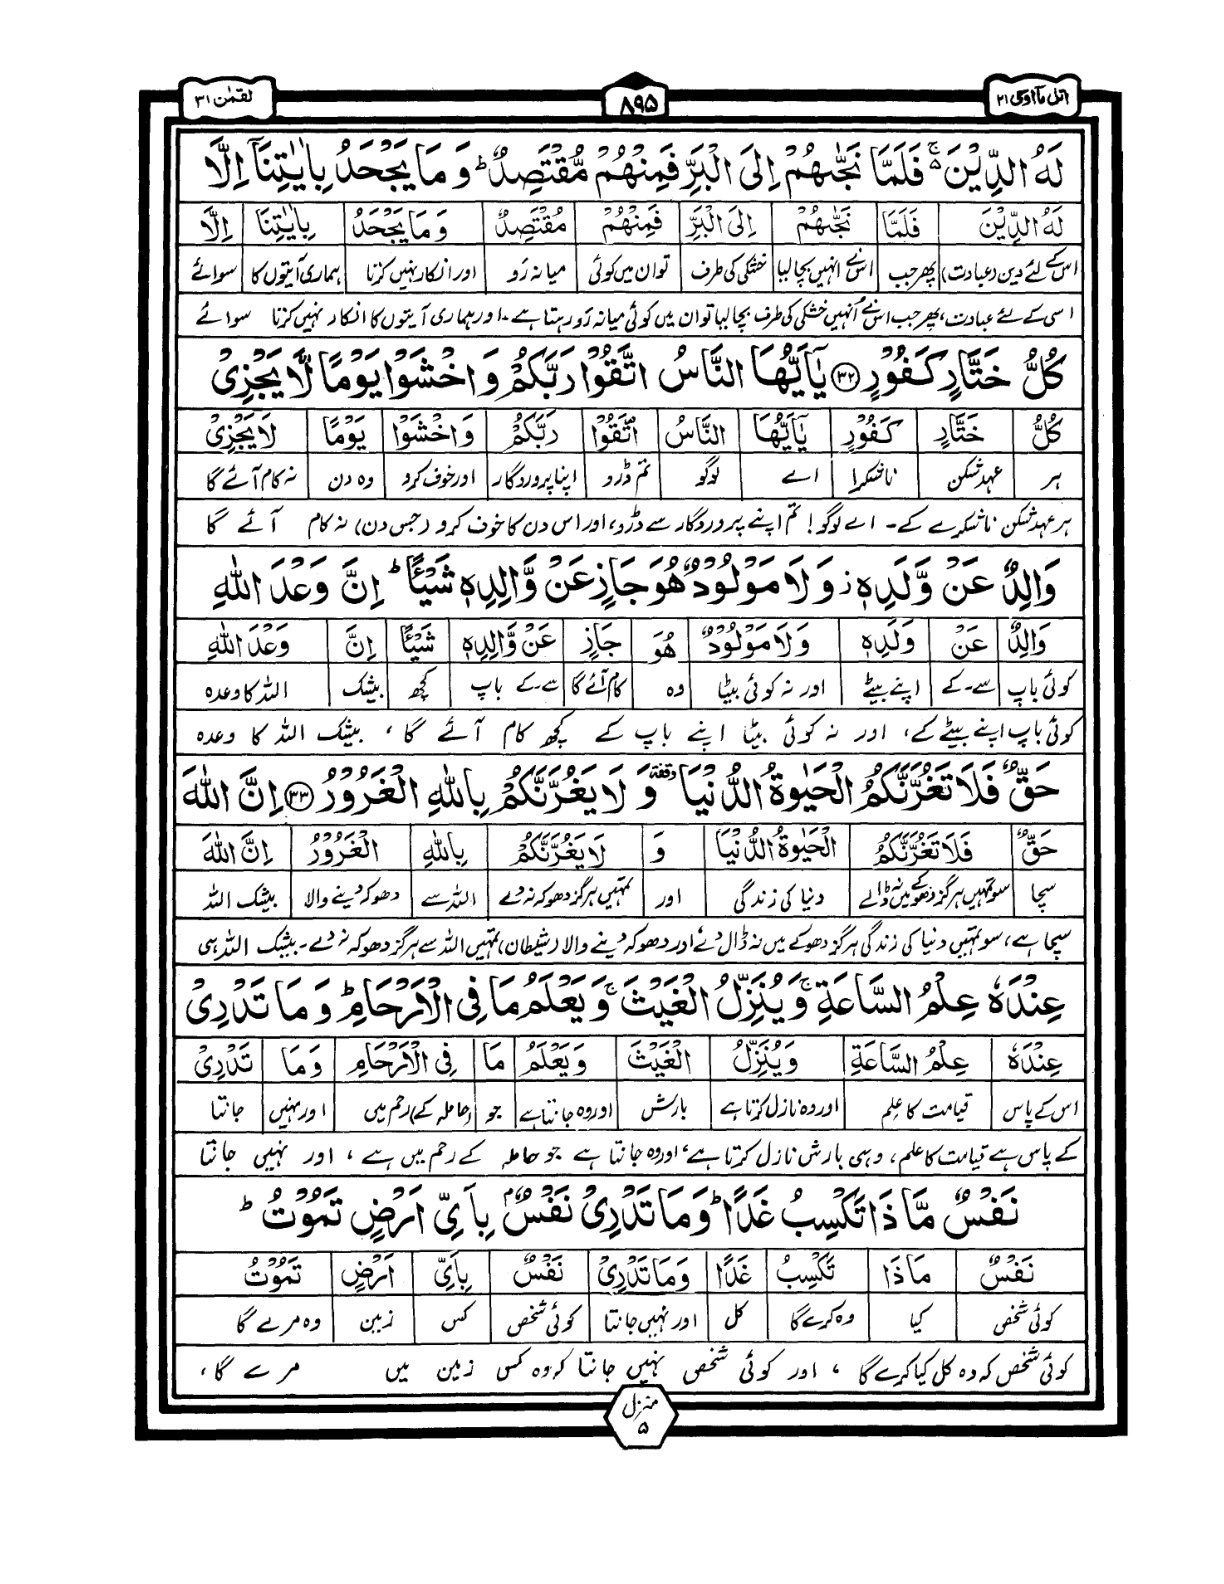 اتل مآ اوحی ۲۱
۸۹۵
لقمٰن ۳۱
لَهُ الدِّيْنَ ۚ۬ فَلَمَّا نَجّٰىهُمْ اِلَى الْبَرِّ فَمِنْهُمْ مُّقْتَصِدٌ ؕ وَ مَا يَجْحَدُ بِاٰيٰتِنَاۤ اِلَّا
لَهُ الدِّيْنَ فَلَمَّا نَجّٰىهُمْ اِلَى الْبَرِّ فَمِنْهُمْ مُقْتَصِدٌ وَمَا يَجْحَدُ بِاٰيٰتِنَا اِلَّا
اس کے لئے دین (عبادت) پھر جب اس نے انہیں بچا لیا خشکی کی طرف تو ان میں کوئی میانہ رَو اور انکار نہیں کرتا ہماری آیتوں کا سوائے
اسی کے لئے عبادت، پھر جب اس نے اُنہیں خشکی کی طرف بچا لیا تو ان میں کوئی میانہ رَو رہتا ہے۔ اور ہماری آیتوں کا انکار نہیں کرتا سوائے
كُلُّ خَتَّارٍ كَفُوْرٍ ۝۳۲ يٰۤاَيُّهَا النَّاسُ اتَّقُوْا رَبَّكُمْ وَ اخْشَوْا يَوْمًا لَّا يَجْزِىْ
كُلُّ خَتَّارٍ كَفُوْرٍ يٰۤاَيُّهَا النَّاسُ اتَّقُوْا رَبَّكُمْ وَاخْشَوْا يَوْمًا لَا يَجْزِىْ
ہر عہد شکن ناشکرا اے لوگو تم ڈرو اپنا پروردگار اور خوف کرو وہ دن نہ کام آئے گا
ہر عہد شکن ناشکرے کے۔ اے لوگو! تم اپنے پروردگار سے ڈرو، اور اس دن کا خوف کرو (جس دن) نہ کام آئے گا
وَالِدٌ عَنْ وَّلَدِهٖ ز وَ لَا مَوْلُوْدٌ هُوَ جَازٍ عَنْ وَّالِدِهٖ شَيْـًٔا ؕ اِنَّ وَعْدَ اللّٰهِ
وَالِدٌ عَنْ وَلَدِهٖ وَلَا مَوْلُوْدٌ هُوَ جَازٍ عَنْ وَّالِدِهٖ شَيْـًٔا اِنَّ وَعْدَ اللّٰهِ
کوئی باپ سے۔ کے اپنے بیٹے اور نہ کوئی بیٹا وہ کام آئے گا سے۔ کے باپ کچھ بیشک اللہ کا وعدہ
کوئی باپ اپنے بیٹے کے، اور نہ کوئی بیٹا اپنے باپ کے کچھ کام آئے گا، بیشک اللہ کا وعدہ
حَقٌّ فَلَا تَغُرَّنَّكُمُ الْحَيٰوةُ الدُّنْيَا وقفة وَ لَا يَغُرَّنَّكُمْ بِاللّٰهِ الْغَرُوْرُ ۝۳۳ اِنَّ اللّٰهَ
حَقٌّ فَلَا تَغُرَّنَّكُمُ الْحَيٰوةُ الدُّنْيَا وَ لَا يَغُرَّنَّكُمْ بِاللّٰهِ الْغَرُوْرُ اِنَّ اللّٰهَ
سچا سو تمہیں ہرگز دھوکے میں نہ ڈالے دنیا کی زندگی اور تمہیں ہرگز دھوکہ نہ دے اللہ سے دھوکہ دینے والا بیشک اللہ
سچا ہے، سو تمہیں دنیا کی زندگی ہرگز دھوکے میں نہ ڈال دے اور دھوکہ دینے والا (شیطان) تمہیں اللہ سے ہرگز دھوکہ نہ دے۔ بیشک اللہ ہی
عِنْدَهٗ عِلْمُ السَّاعَةِ ۚ وَ يُنَزِّلُ الْغَيْثَ ۚ وَ يَعْلَمُ مَا فِى الْاَرْحَامِ ؕ وَ مَا تَدْرِىْ
عِنْدَهٗ عِلْمُ السَّاعَةِ وَ يُنَزِّلُ الْغَيْثَ وَ يَعْلَمُ مَا فِى الْاَرْحَامِ وَ مَا تَدْرِىْ
اس کے پاس قیامت کا علم اور وہ نازل کرتا ہے بارش اور وہ جانتا ہے جو (حاملہ کے) رحم میں اور نہیں جانتا
کے پاس ہے قیامت کا علم، وہی بارش نازل کرتا ہے، اور وہ جانتا ہے جو حاملہ کے رحم میں ہے، اور نہیں جانتا
نَفْسٌ مَّا ذَا تَكْسِبُ غَدًا ؕ وَ مَا تَدْرِىْ نَفْسٌۢ بِاَىِّ اَرْضٍ تَمُوْتُ ؕ
نَفْسٌ مَاذَا تَكْسِبُ غَدًا وَمَا تَدْرِىْ نَفْسٌ بِاَىِّ اَرْضٍ تَمُوْتُ
کوئی شخص کیا وہ کرے گا کل اور نہیں جانتا کوئی شخص کس زمین وہ مرے گا
کوئی شخص کہ وہ کل کیا کرے گا، اور کوئی شخص نہیں جانتا کہ وہ کس زمین میں مرے گا،
منزل ۵